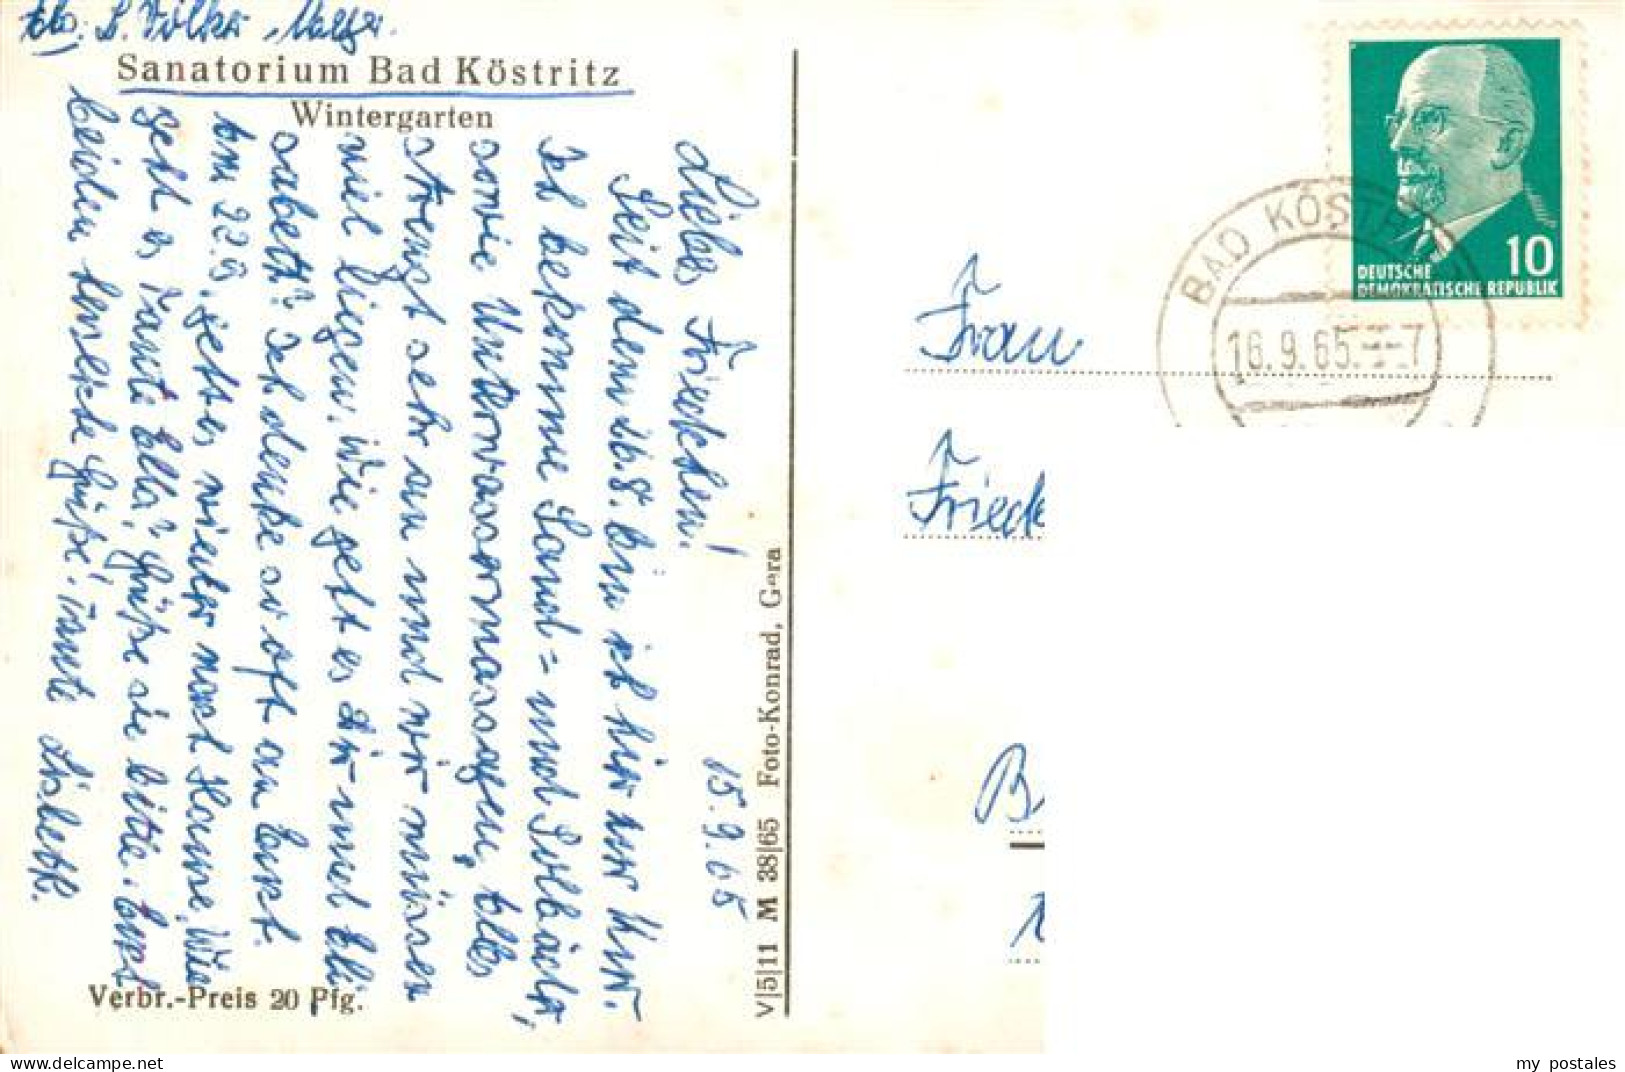 Abs.: L. Völker
Sanatorium Bad Köstritz
Wintergarten
15.9.65
Liebes Friedchen!
Seit dem 26.8. bin ich hier zur Kur.
Ich bekomme Sand= und Solbäder,
sowie Unterwassermassagen, alles
strengt sehr an und wir müssen
viel liegen. Wie geht es Dir und Eli-
sabeth? Ich denke so oft an Euch.
Am 22.9. geht es wieder nach Hause. Wie
geht es Tante Ella? Grüße sie bitte. Euch
beiden herzliche Grüße! Tante Lisbeth.
Verbr.-Preis 20 Pfg.
V|5|11 M 38|65 Foto-Konrad, Gera
Frau
Friede
10
DEUTSCHE
DEMOKRATISCHE REPUBLIK
BAD KÖSTR
16.9.65.--7
my postales